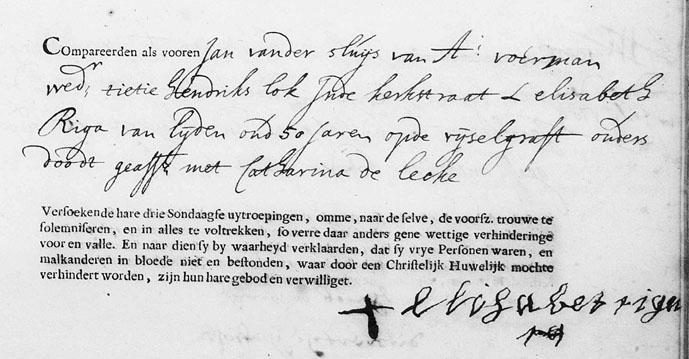 COmpareerden als vooren Jan vander sluijs van A: voerman
wedr, tietie Hendriks lok Inde kerkstraat & elisabeth
Riga van lyden oud 50 Jaren opde rijselgraft ouders
doodt geasst met Catharina de lecke
Verſoekende hare drie Sondaagſe uytroepingen, omme, naar de ſelve, de voorſz. trouwe te
ſolemniſeren, en in alles te voltrekken, ſo verre daar anders gene wettige verhinderinge
voor en valle. En naar dien ſy by waarheyd verklaarden, dat ſy vrye Perſonen waren, en
malkanderen in bloede niet en beſtonden, waar door een Chriſtelijk Huwelijk mochte
verhindert worden, zijn hun hare gebod en verwilliget.
elisabet riga